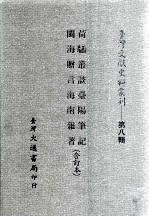 臺灣文獻史料叢刊 第八輯
荷牐叢談臺陽筆記
閩海贈言海南雜著(合訂本)
臺灣大通書局印行